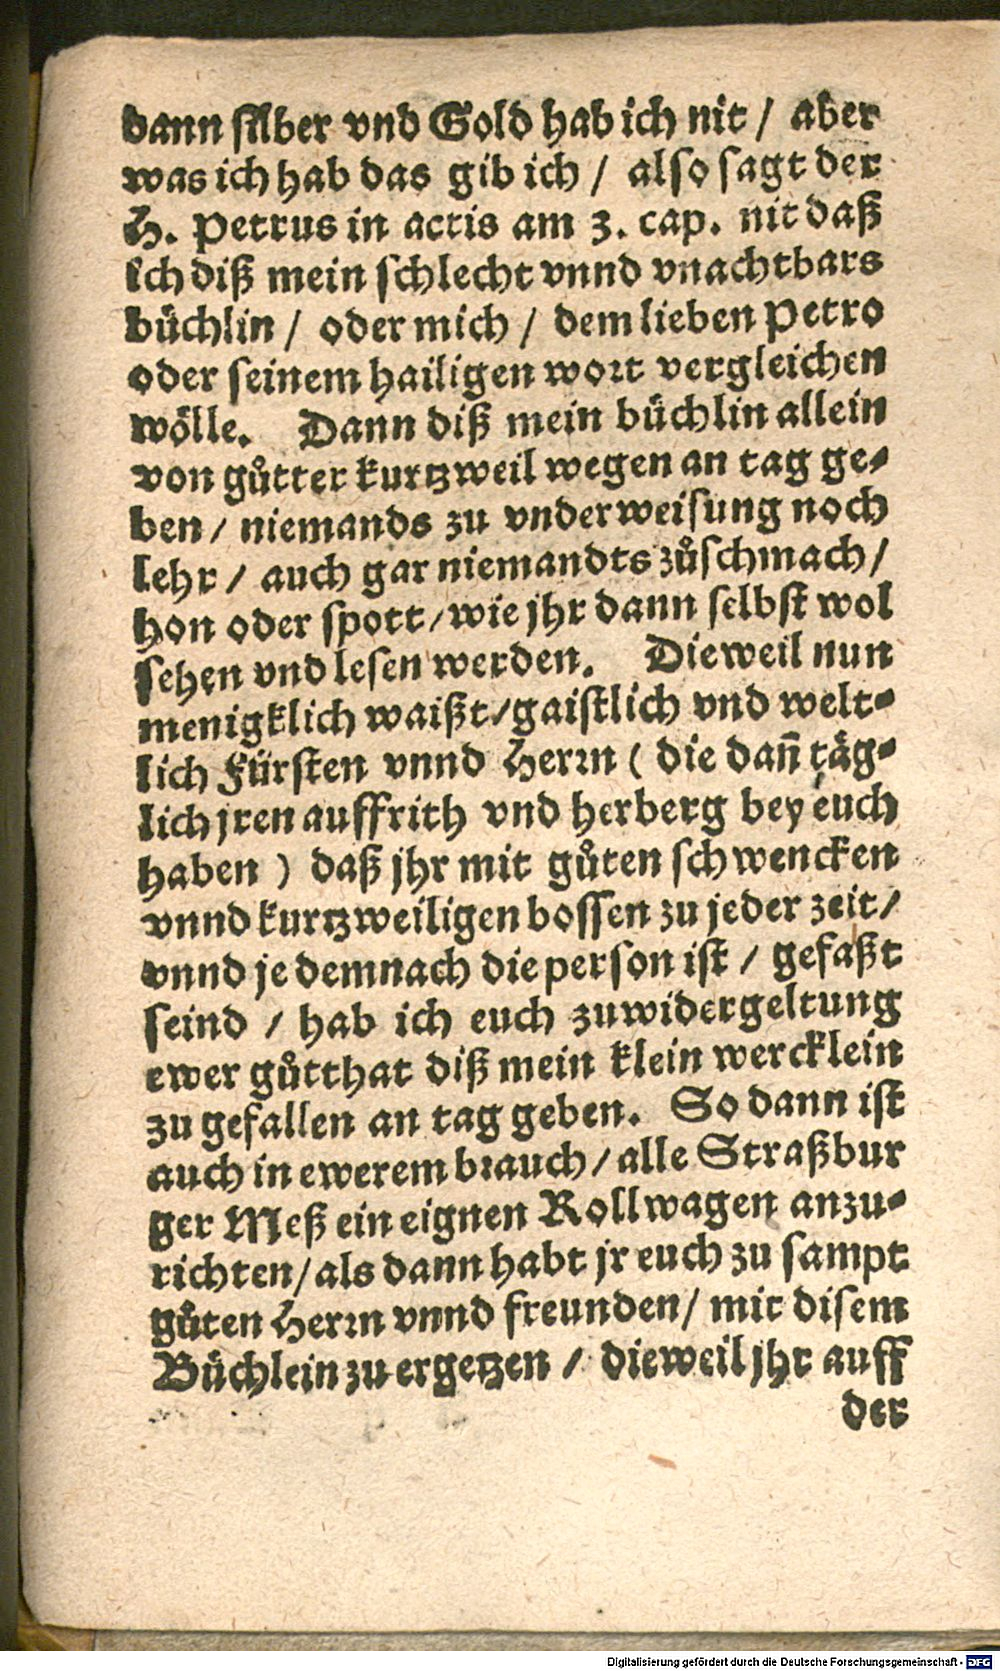 dann silber vnd Gold hab ich nit / aber
was ich hab das gib ich / also sagt der
H. Petrus in actis am 3. cap. nit daß
Ich diß mein schlecht vnnd vnachtbars
büchlin / oder mich / dem lieben Petro
oder seinem hailigen wort vergleichen
wölle. Dann diß mein büchlin allein
von gůtter kurtzweil wegen an tag ge-
ben / niemands zu vnderweisung noch
lehr / auch gar niemandts zůschmach /
hon oder spott / wie jhr dann selbst wol
sehen vnd lesen werden. Dieweil nun
menigklich waißt / gaistlich vnd welt-
lich Fürsten vnnd Herrn ( die dañ täg-
lich jren auffrith vnd herberg bey euch
haben ) daß jhr mit gůten schwencken
vnnd kurtzweiligen bossen zu jeder zeit /
vnnd je demnach die person ist / gefaßt
seind / hab ich euch zuwidergeltung
ewer gůtthat diß mein klein wercklein
zu gefallen an tag geben. So dann ist
auch in ewerem brauch / alle Straßbur
ger Meß ein eignen Rollwagen anzu-
richten / als dann habt jr euch zu sampt
gůten Herrn vnnd freunden / mit disem
Büchlein zu ergetzen / dieweil jhr auff
der
Digitalisierung gefördert durch die Deutsche Forschungsgemeinschaft - DFG